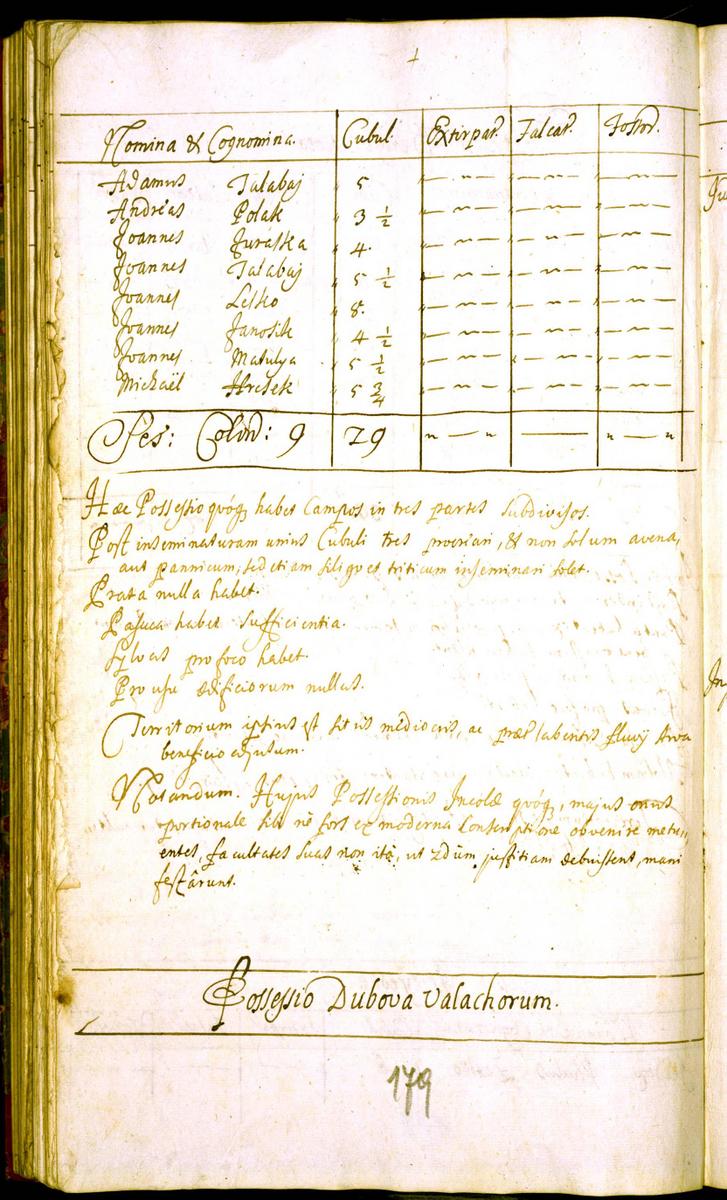 Nomina & Cognomina. Cubul. Extirpat. Falcat. Fossor.
Adamus Talabaj 5
Andreas Polak 3 1/2
Joannes Juraska 4.
Joannes Talabaj 5 1/2
Joannes Lesko 8.
Joannes Janosik 4 1/2
Joannes Matulya 5 1/2
Michaël Hrcsek 5 3/4
Ses: Colon: 9 29
Hæc Possessio quóq; habet Campos in tres partes subdivisos.
Post inseminaturam unius Cubuli tres procreari, & non solum avena,
aut pannicum; sed etiam siligo et triticum inseminari solet.
Prata nulla habet.
Pascua habet sufficientia.
Sylvas pro foco habet.
Pro usu ædificiorum nullas.
Territorium ipsius est situs mediocris, ac præterlabentis fluvij Arva
beneficio adjutum.
Notandum. Hujus Possessionis Incolæ quóq;, majus onus
portionale sibi ne fors ex moderna Conscriptione obvenire metu„
entes, facultates suas non ita, ut justitiam debuissent, mani
festârunt.
Possessio Dubova Valachorum.
179